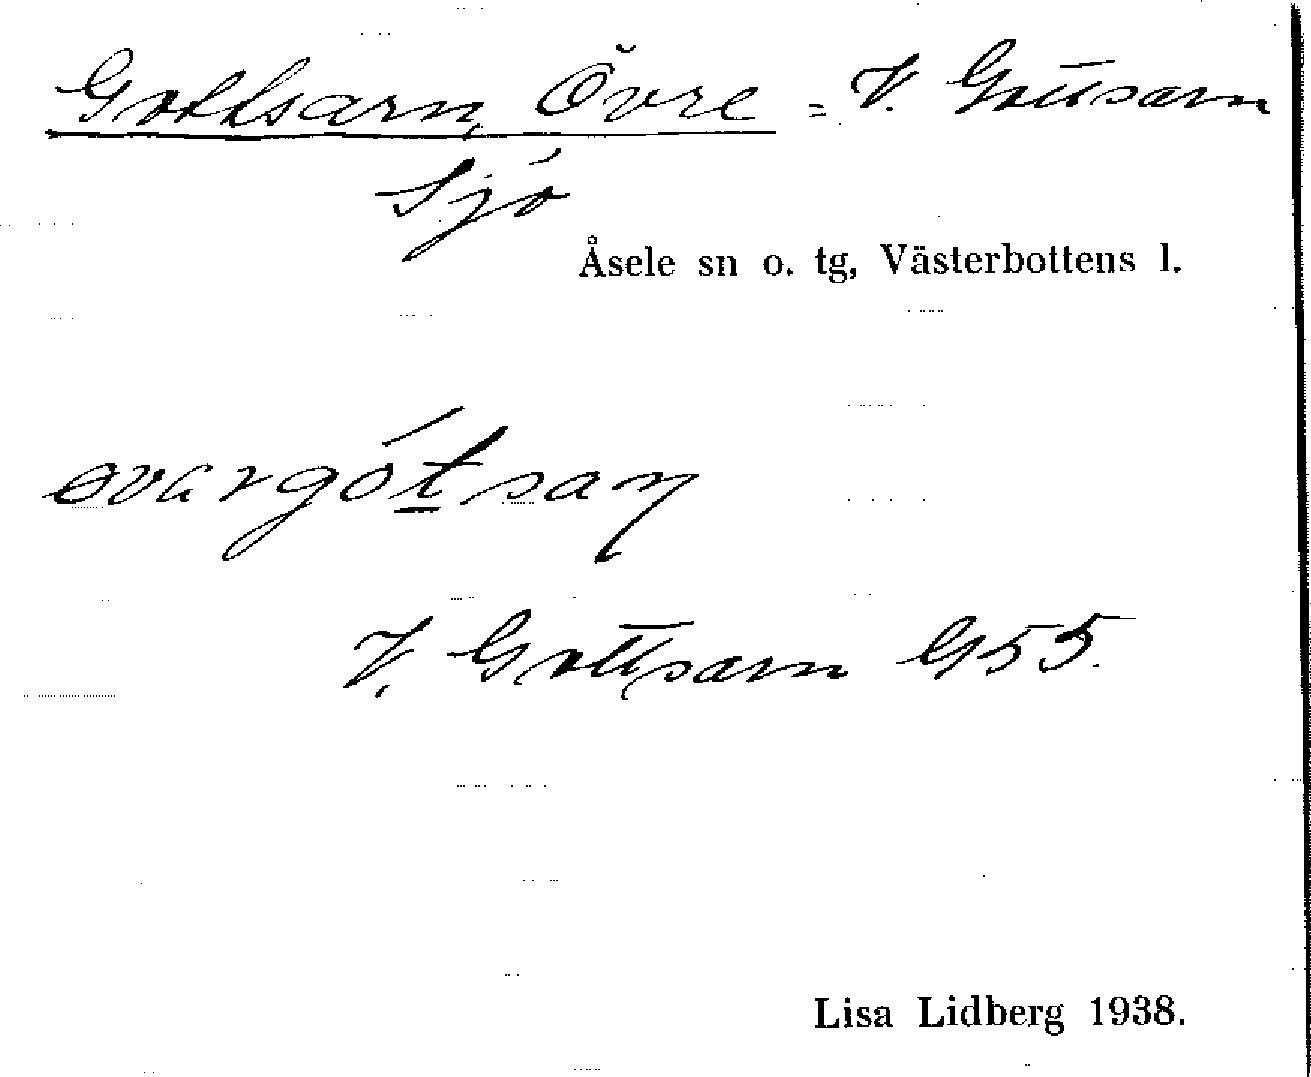 Gottsarn, Övre = V. Gottsarn
Sjö
Åsele sn o. tg, Västerbottens l.
V. Gottsarn G55.
Lisa Lidberg 1938.